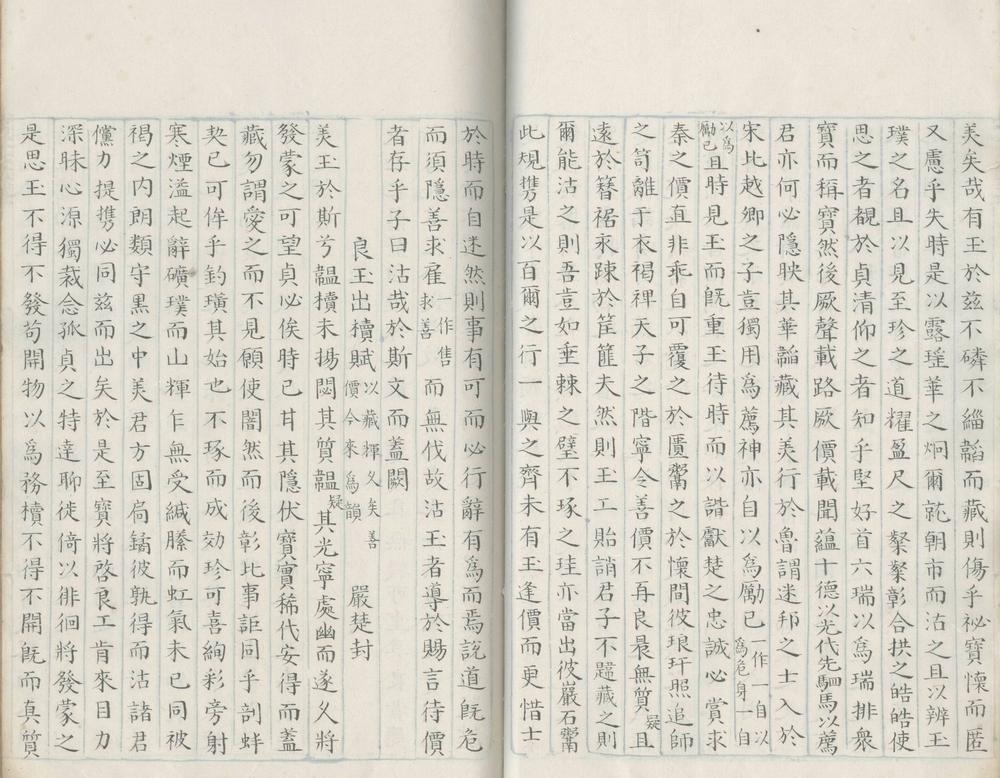 美矣哉有玉於茲不磷不緇韞而藏則傷乎祕寶懷而匿
又慮乎失時是以露瑤華之炯爾就朝市而沽之且以辨玉
璞之名且以見至珍之道耀盈尺之粲粲彰合拱之皓皓使
思之者覩於貞清仰之者知乎堅好首六瑞以為瑞排衆
寶而稱寶然後厥聲載路厥價載聞蘊十德以光代先駟馬以薦
君亦何必隱映其華韜藏其美行於魯謂迷邦之士入於
宋比越鄉之子豈獨用為薦神亦自以為勵己一作一自以為危身一自
以為勵己且時見玉而旣重玉待時而以諧獻楚之忠誠心賞求
秦之價直非乖自可覆之於匱鬻之於懷間彼琅玕照追師
之笥離于衣褐裨天子之階寧令善價不再良晨無質疑且
遠於簪裾永踈於筐篚夫然則玉工貽誚君子不韙藏之則
爾能沽之則吾豈如垂棘之璧不琢之珪亦當出彼巖石鬻
此規擕是以百爾之行一與之齊未有玉逢價而更惜士
於時而自迷然則事有可而必行辭有為而焉說道旣危
而須隱善求雇一作售求善而無伐故沽玉者導於賜言待價
者存乎子曰沽哉於斯文而蓋闕
良玉出櫝賦以藏輝久矣善價今來為韻 嚴楚封
美玉於斯兮韞櫝未揚閟其質韞疑其光寧處幽而遂久將
發蒙之可望貞必俟時已甘其隱伏寶實稀代安得而蓋
藏勿謂愛之而不見願使闇然而後彰比事詎同乎剖蚌
契已可侔乎釣璜其始也不琢而成効珍可喜絢彩旁射
寒煙溢起辭礦璞而山輝乍無受緘縢而虹氣未已同被
褐之内朗類守黑之中美君方固扃鐍彼孰得而沽諸君
儻力提擕必同茲而出矣於是至寶將啓良工肯來目力
深昧心源獨裁念孤貞之特達聊徙倚以徘徊將發蒙之
是思玉不得不發苟開物以為務櫝不得不開旣而真質